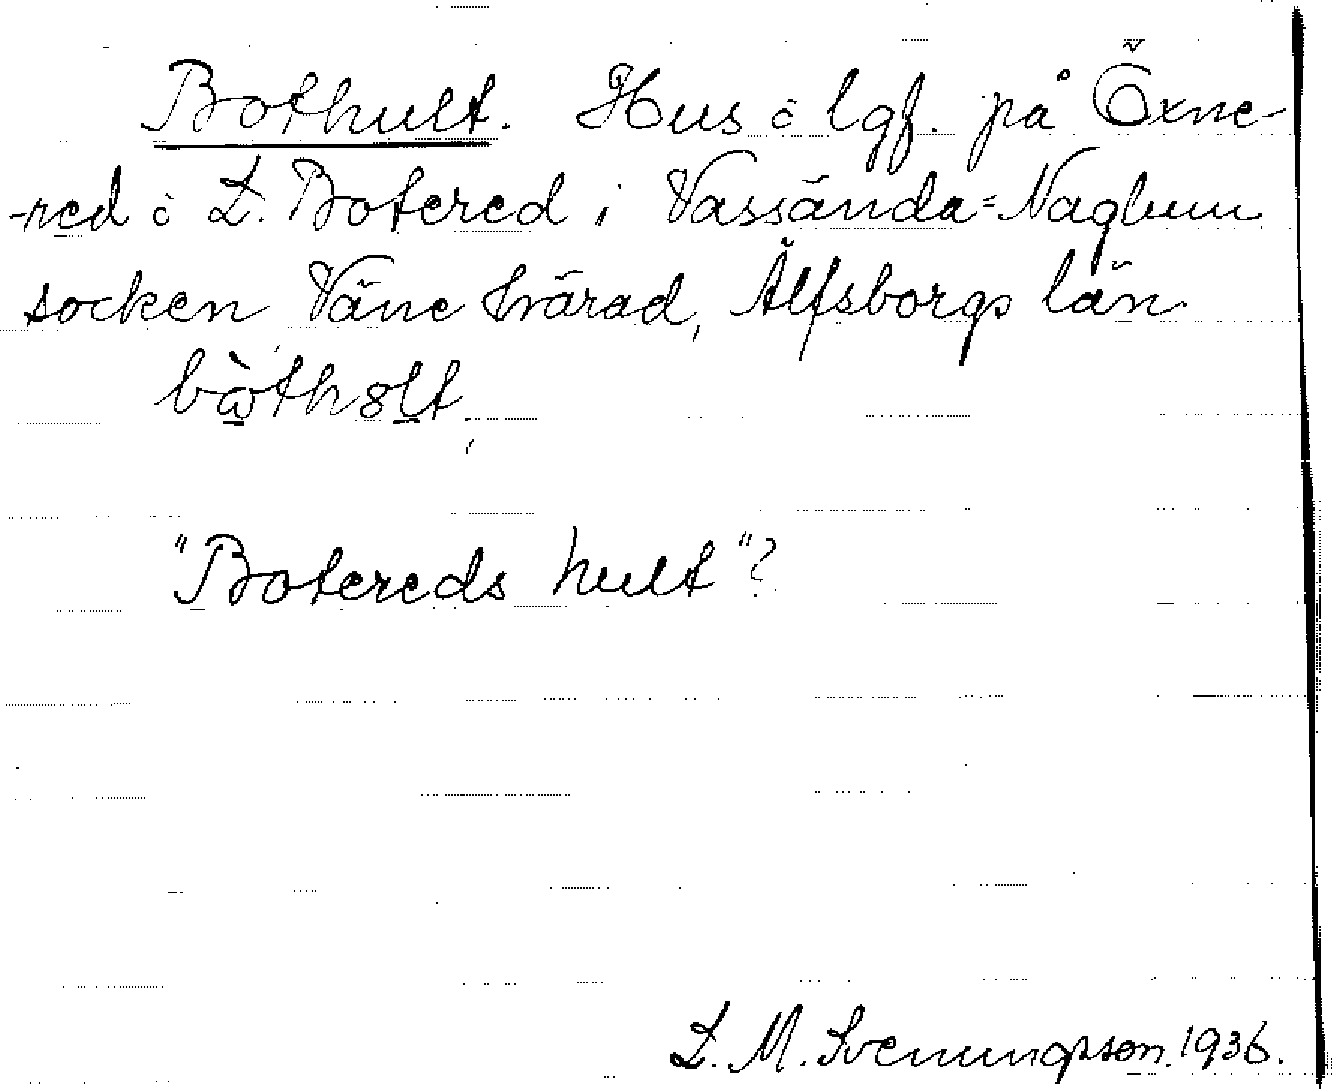 Bothult. Hus o lgf. på Öxne-
-red o L. Botered i Vassända=Naglum
socken, Väne härad, Älfsborgs län
bòthólt,
"Botereds hult"?
L. M. Svenungsson. 1936.